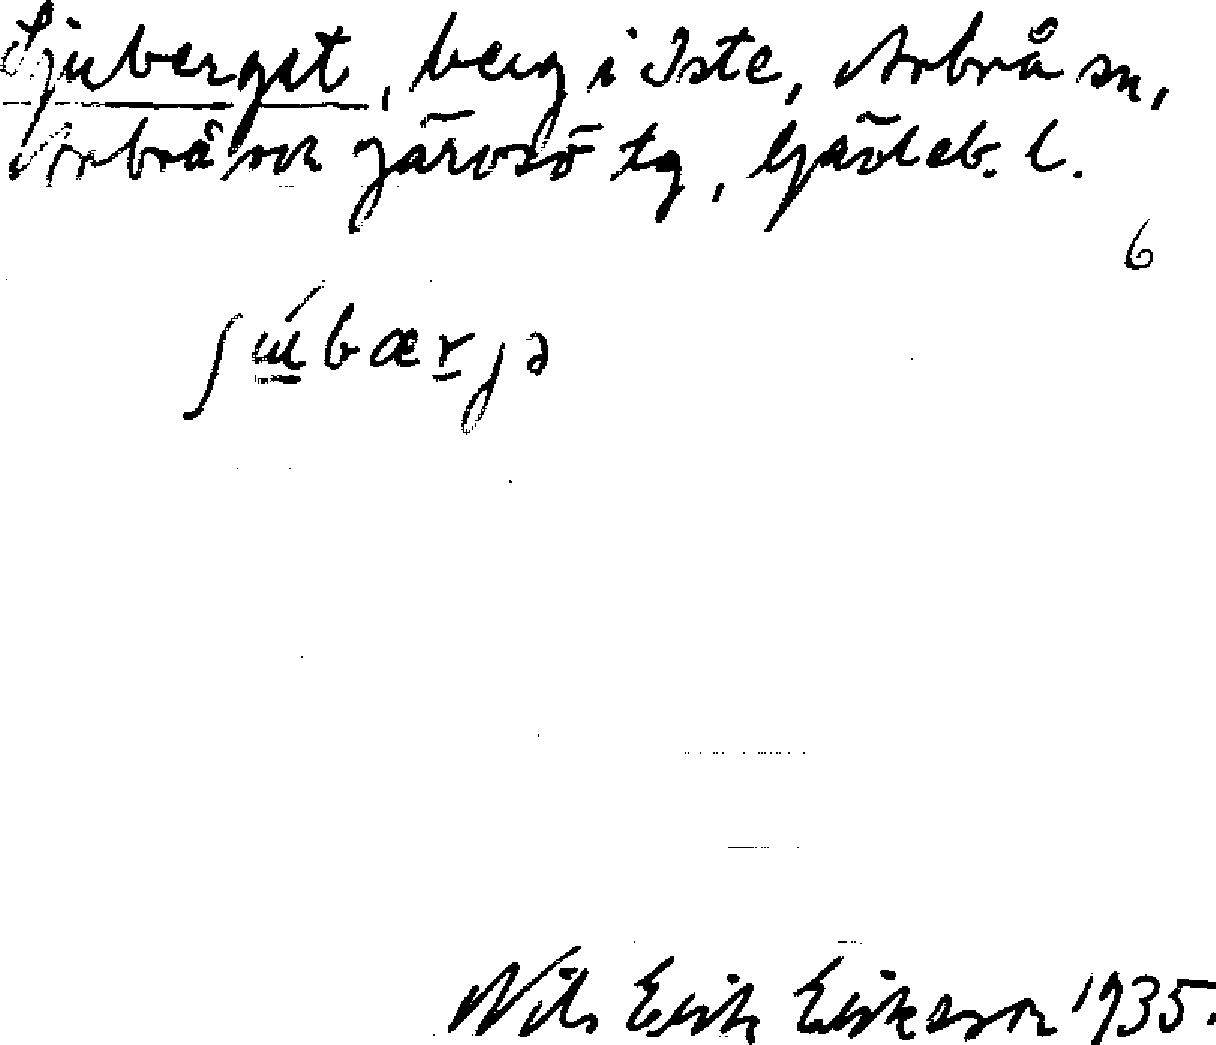 Sjuberget, berg i Iste, Arbrå sn,
Arbrå och Järvsö tg, Gävleb. l.
6
ʃɯ́bærjə
Nils Erik Eriksson 1935.